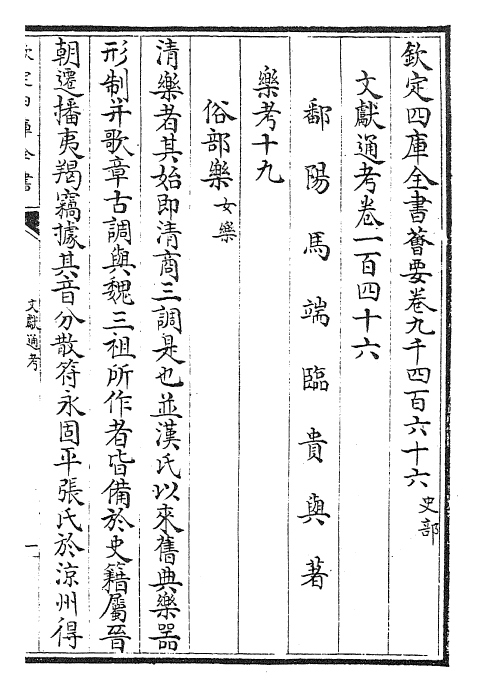 欽定四庫全書薈要卷九千四百六十六史部
文獻通考卷一百四十六
鄱陽馬端臨貴與著
樂考十九
俗部樂女樂
清樂者其始即清商三調是也並漢氏以來舊典樂器
形制并歌章古調與魏三祖所作者皆備於史籍屬晉
朝遷播夷羯竊據其音分散苻永固平張氏於涼州得
欽定四庫全書
文獻通考
一